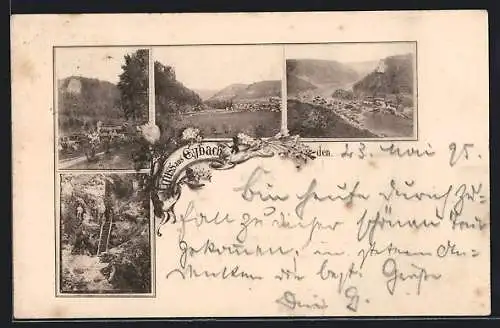 Gruss aus Eybach
den 23. Mai 95.
Bin heute durch Zu-
fall zu dieser schönen Tour
gekommen, in stetem An-
denken die besten Grüße
Dein G.